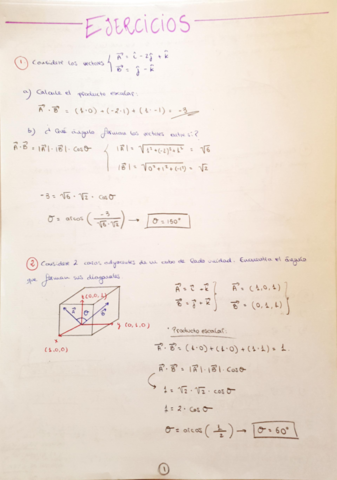 EJERCICIOS
1 Considere los vectores { A = i - 2j + k
B = j - k
a) Calcula el producto escalar:
A · B = (1·0) + (-2·1) + (1·-1) = -3
b) ¿Qué ángulo forman los vectores entre sí?
A·B = |A| · |B| · cosθ { |A| = √1²+(-2)²+1² = √6
|B| = √0²+1²+(-1)² = √2
-3 = √6 · √2 · cosθ
θ = arcos (-3 / √6·√2) → θ = 150°
2 Considere 2 caras adyacentes de un cubo de lado unidad. Encuentra el ángulo
que forman sus diagonales
z(0,0,1)
A θ B
y (0,1,0)
x
(1,0,0)
A = i + k } A = (1,0,1) }
B = j + k } B = (0,1,1) }
· Producto escalar:
A · B = (1·0) + (1·0) + (1·1) = 1
A · B = |A| · |B| · cosθ
1 = √2 · √2 · cosθ
1 = 2 · cosθ
θ = arcos (1/2) → θ = 60°
1